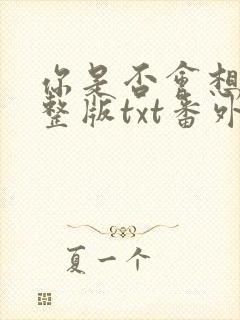 你是否会想
整版txt番外
夏一个